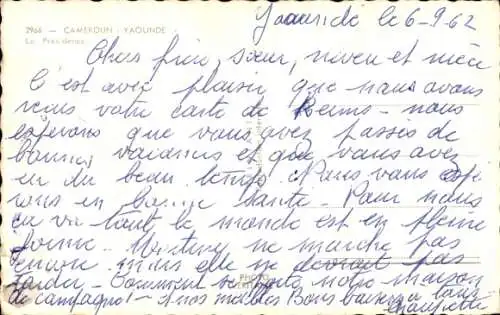 2966 — CAMEROUN - YAOUNDE
La Présidence
Yaoundé le 6-9-62
Chers frère, sœur, neveu et nièce
C'est avec plaisir que nous avons
reçus votre carte de Reims - nous
espérons que vous avez passés de
bonnes vacances et que vous avez
eu du beau temps. Nous vous espé
rons en bonne santé. Pour nous
ça va tout le monde est en pleine
forme. ne marche pas
encore mais elle ne devrait pas
tarder - Comment se porte notre maison
de campagne! - nos Bons baisers à tous